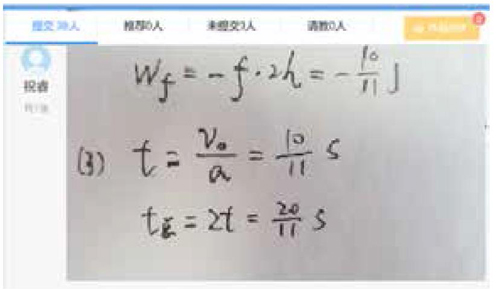 提交38人 推荐0人 未提交3人 请教0人
祝睿
W_f = -f·2h = -10/11 J
(3) t = v₀/a = 10/11 s
t总 = 2t = 20/11 s